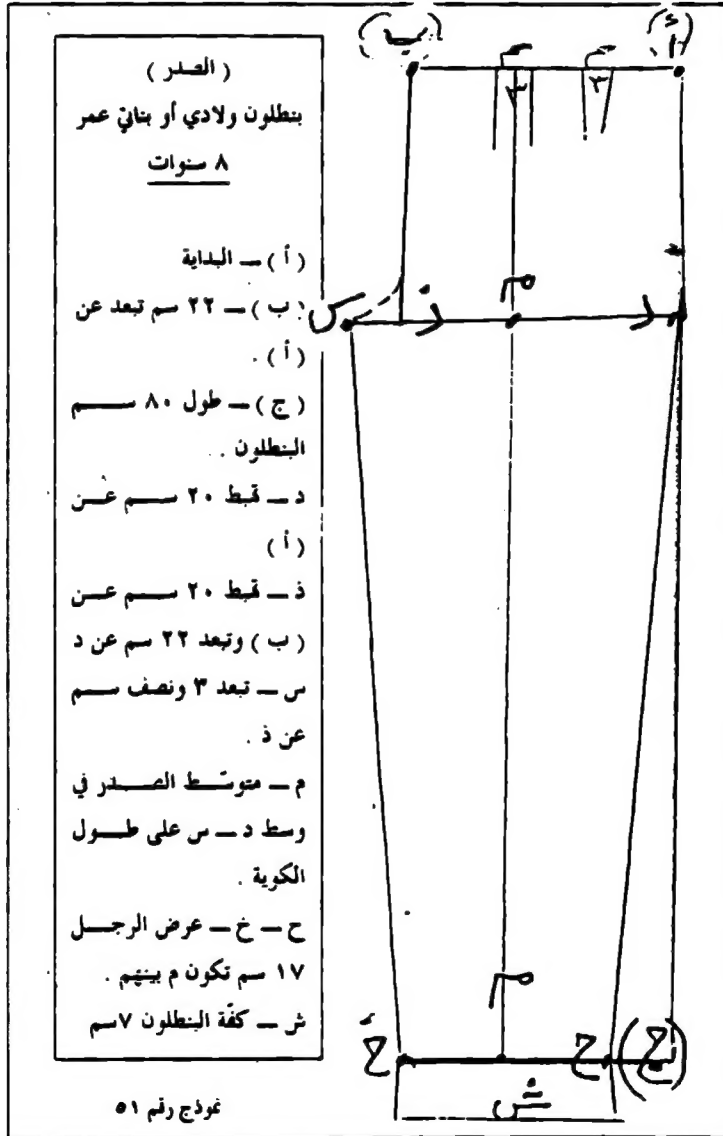 ( الصدر )
بنطلون ولادي أو بناتي عمر
٨ سنوات
( أ ) – البداية
( ب ) – ٢٢ سم تبعد عن
( أ ) .
( ج ) – طول ٨٠ سم
البنطلون .
د – تهبط ٢٠ سم عن
( أ )
ذ – تهبط ٢٠ سم عن
( ب ) وتبعد ٢٢ سم عن د
س – تبعد ٣ ونصف سم
عن ذ .
م – متوسّط الصدر في
وسط د – س على طول
الكوية .
ح – خ – عرض الرجل
١٧ سم تكون م بينهم .
ش – كفّة البنطلون ٧سم
نموذج رقم ٥١
(ب) (أ)
م م
٣ ٣
س ذ م د
م
خ ح (ج)
ش